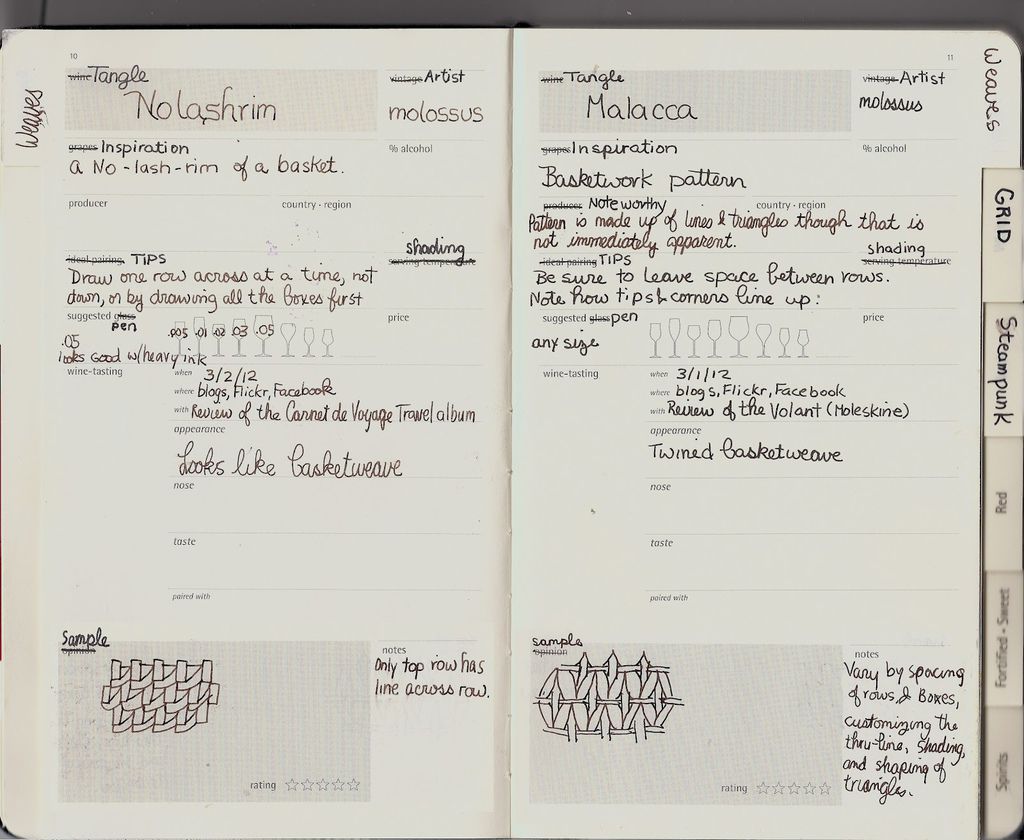 10
wine Tangle
vintage Artist
Nolashrim
molossus
grapes Inspiration
% alcohol
a No-lash-rim of a basket.
producer
country · region
ideal pairing TIPS
shading
serving temperature
Draw one row across at a time, not
down, or by drawing all the boxes first
suggested glass pen
price
.005 .01 .02 .03 .05
.05
looks good w/heavy ink
wine-tasting
when 3/2/12
where blogs, Flickr, Facebook
with Review of the Carnet de Voyage Travel album
appearance
Looks like basketweave
nose
taste
paired with
Sample
opinion
notes
Only top row has
line across row.
rating
Weaves
11
wine Tangle
vintage Artist
Malacca
molossus
grapes Inspiration
% alcohol
Basketwork pattern
producer Noteworthy
country · region
Pattern is made up of lines & triangles though that is
not immediately apparent.
shading
ideal pairing TIPS
serving temperature
Be sure to leave space between rows.
Note how tips & corners line up:
suggested glass pen
price
any size
wine-tasting
when 3/1/12
where blogs, Flickr, Facebook
with Review of the Volant (Moleskine)
appearance
Twined basketweave
nose
taste
paired with
sample
opinion
notes
Vary by spacing
of rows, & Boxes,
customizing the
thru-line, shading,
and shaping of
triangles.
rating
Weaves
GRID
Steampunk
Red
Fortified · Sweet
Spirits